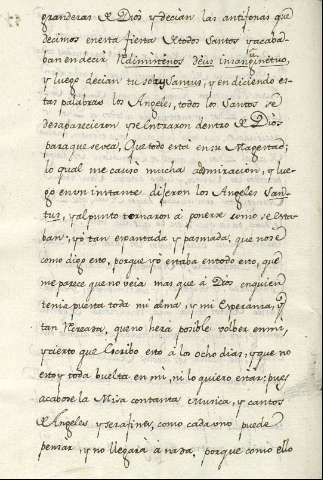 grandezas de Dios y decian las antifonas que
decimos en esta fiesta de todos Santos y acaba
ban en decir Redimistenos Deus insanguinetuo,
y luego decian tu solus Santus, y en diciendo es
tas palabras los Angeles, todos los Santos se
desaparecieron y se entraron dentro de Dios
para que se vea, Que todo está en su Magestad;
lo qual me causó mucha admiracion, y lue-
go en vn instante dijeron los Angeles San-
tus, y al punto tornaron à ponerse como se esta-
ban; yo tan encantada y pasmada, que no sé
como digo esto, porque yo estaba en todo esto, que
me parece que no veia mas que à Dios en quien
tenia puesta toda mi alma, y mi Esperanza, y
tan Recreada, que no hera posible volber en mi,
y cierto que Escribo esto à los ocho dias, y que no
estoy toda buelta en mi, ni lo quiero estar; pues
acabose la Misa con tanta Musica, y cantos
de Angeles y serafines, como cada vno puede
pensar, y no llegará à nada, porque como ello